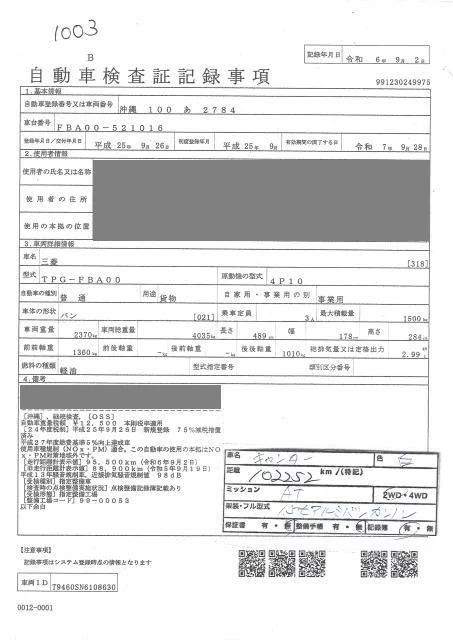 1003
B
記録年月日 令和 6年 9月 2日
自動車検査証記録事項
991230249975
1.基本情報
自動車登録番号又は車両番号 沖縄 100 あ 2784
車台番号 FBA00-521016
登録年月日/交付年月日 平成 25年 9月 26日 初度登録年月 平成 25年 9月 有効期間の満了する日 令和 7年 9月 28日
2.使用者情報
使用者の氏名又は名称
使用者の住所
使用の本拠の位置
3.車両詳細情報
車名 三菱 [318]
型式 TPG-FBA00 原動機の型式 4P10
自動車の種別 普通 用途 貨物 自家用・事業用の別 事業用
車体の形状 バン [021] 乗車定員 3人 最大積載量 1500kg
車両重量 2370kg 車両総重量 4035kg 長さ 489cm 幅 178cm 高さ 284cm
前前軸重 1360kg 前後軸重 -kg 後前軸重 -kg 後後軸重 1010kg 総排気量又は定格出力 2.99L
燃料の種類 軽油 型式指定番号 類別区分番号
4.備考
[沖縄],継続検査,[OSS]
自動車重量税額 ¥12,500 本則税率適用
[24年度税制]平成25年9月26日 新規登録 75%減税措置
済み
平成27年度燃費基準5%向上達成車
使用車種規制(NOx・PM)適合,この自動車の使用の本拠はNO
x・PM対策地域外です。
[走行距離計表示値] 95,500km(令和6年9月2日)
[旧走行距離計表示値] 88,900km(令和5年9月19日)
平成13年騒音規制車,近接排気騒音規制値 98dB
[受検種別]指定整備車
[検査時の点検整備実施状況]点検整備記録簿記載あり
[受検形態]指定整備工場
[整備工場コード]99-00053
以下余白
車名 キャンター 色 白
距離 102252 km(特記)
ミッション AT 2WD・4WD
架装・フル型式
保証書 有・無 整備手帳 有・無 記録簿 有・無
【注意事項】
記録事項はシステム登録時点の情報となります
車両ID 79460SN6108630
0012-0001